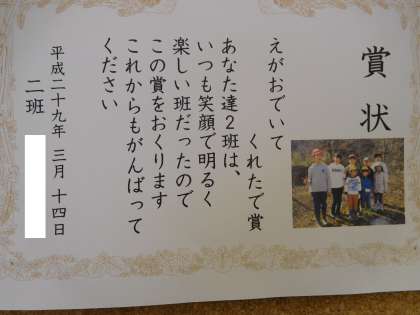 賞状
えがおでいて
くれたで賞
あなた達2班は、
いつも笑顔で明るく
楽しい班だったので
この賞をおくります
これからもがんばって
ください
平成二十九年 三月 十四日
二班